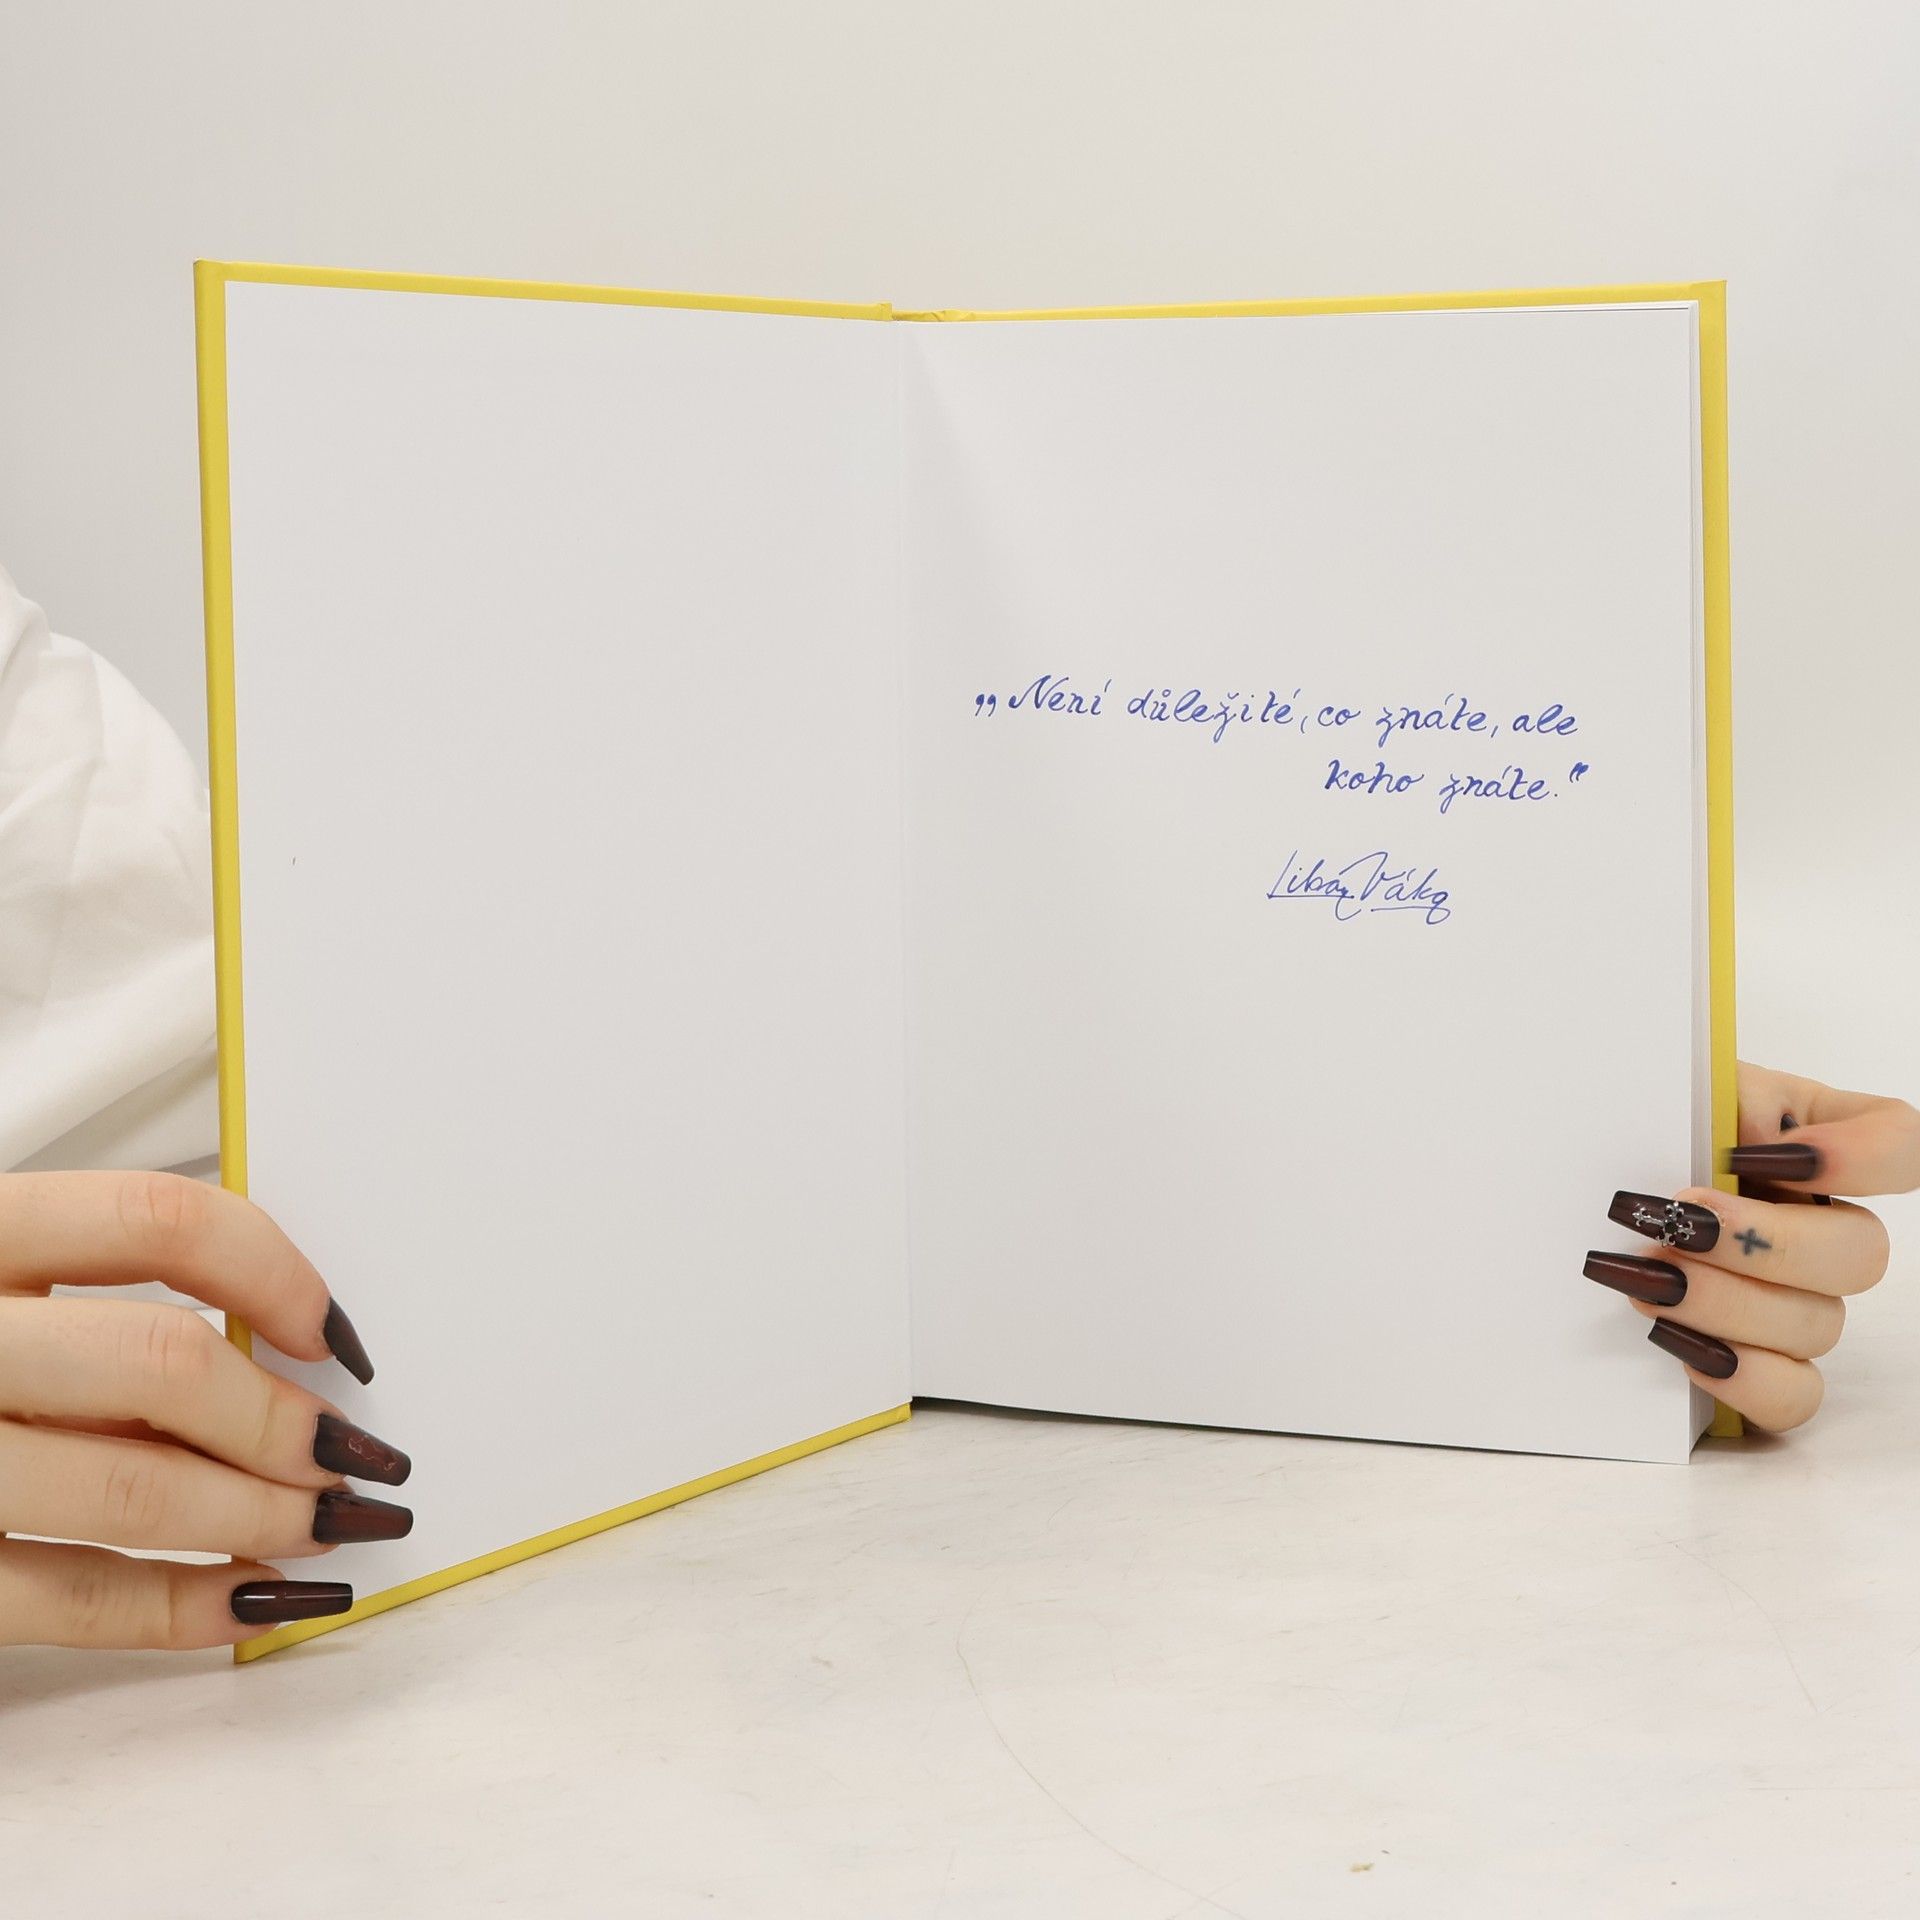 „Není důležité, co znáte, ale
koho znáte.“
Libor Váka